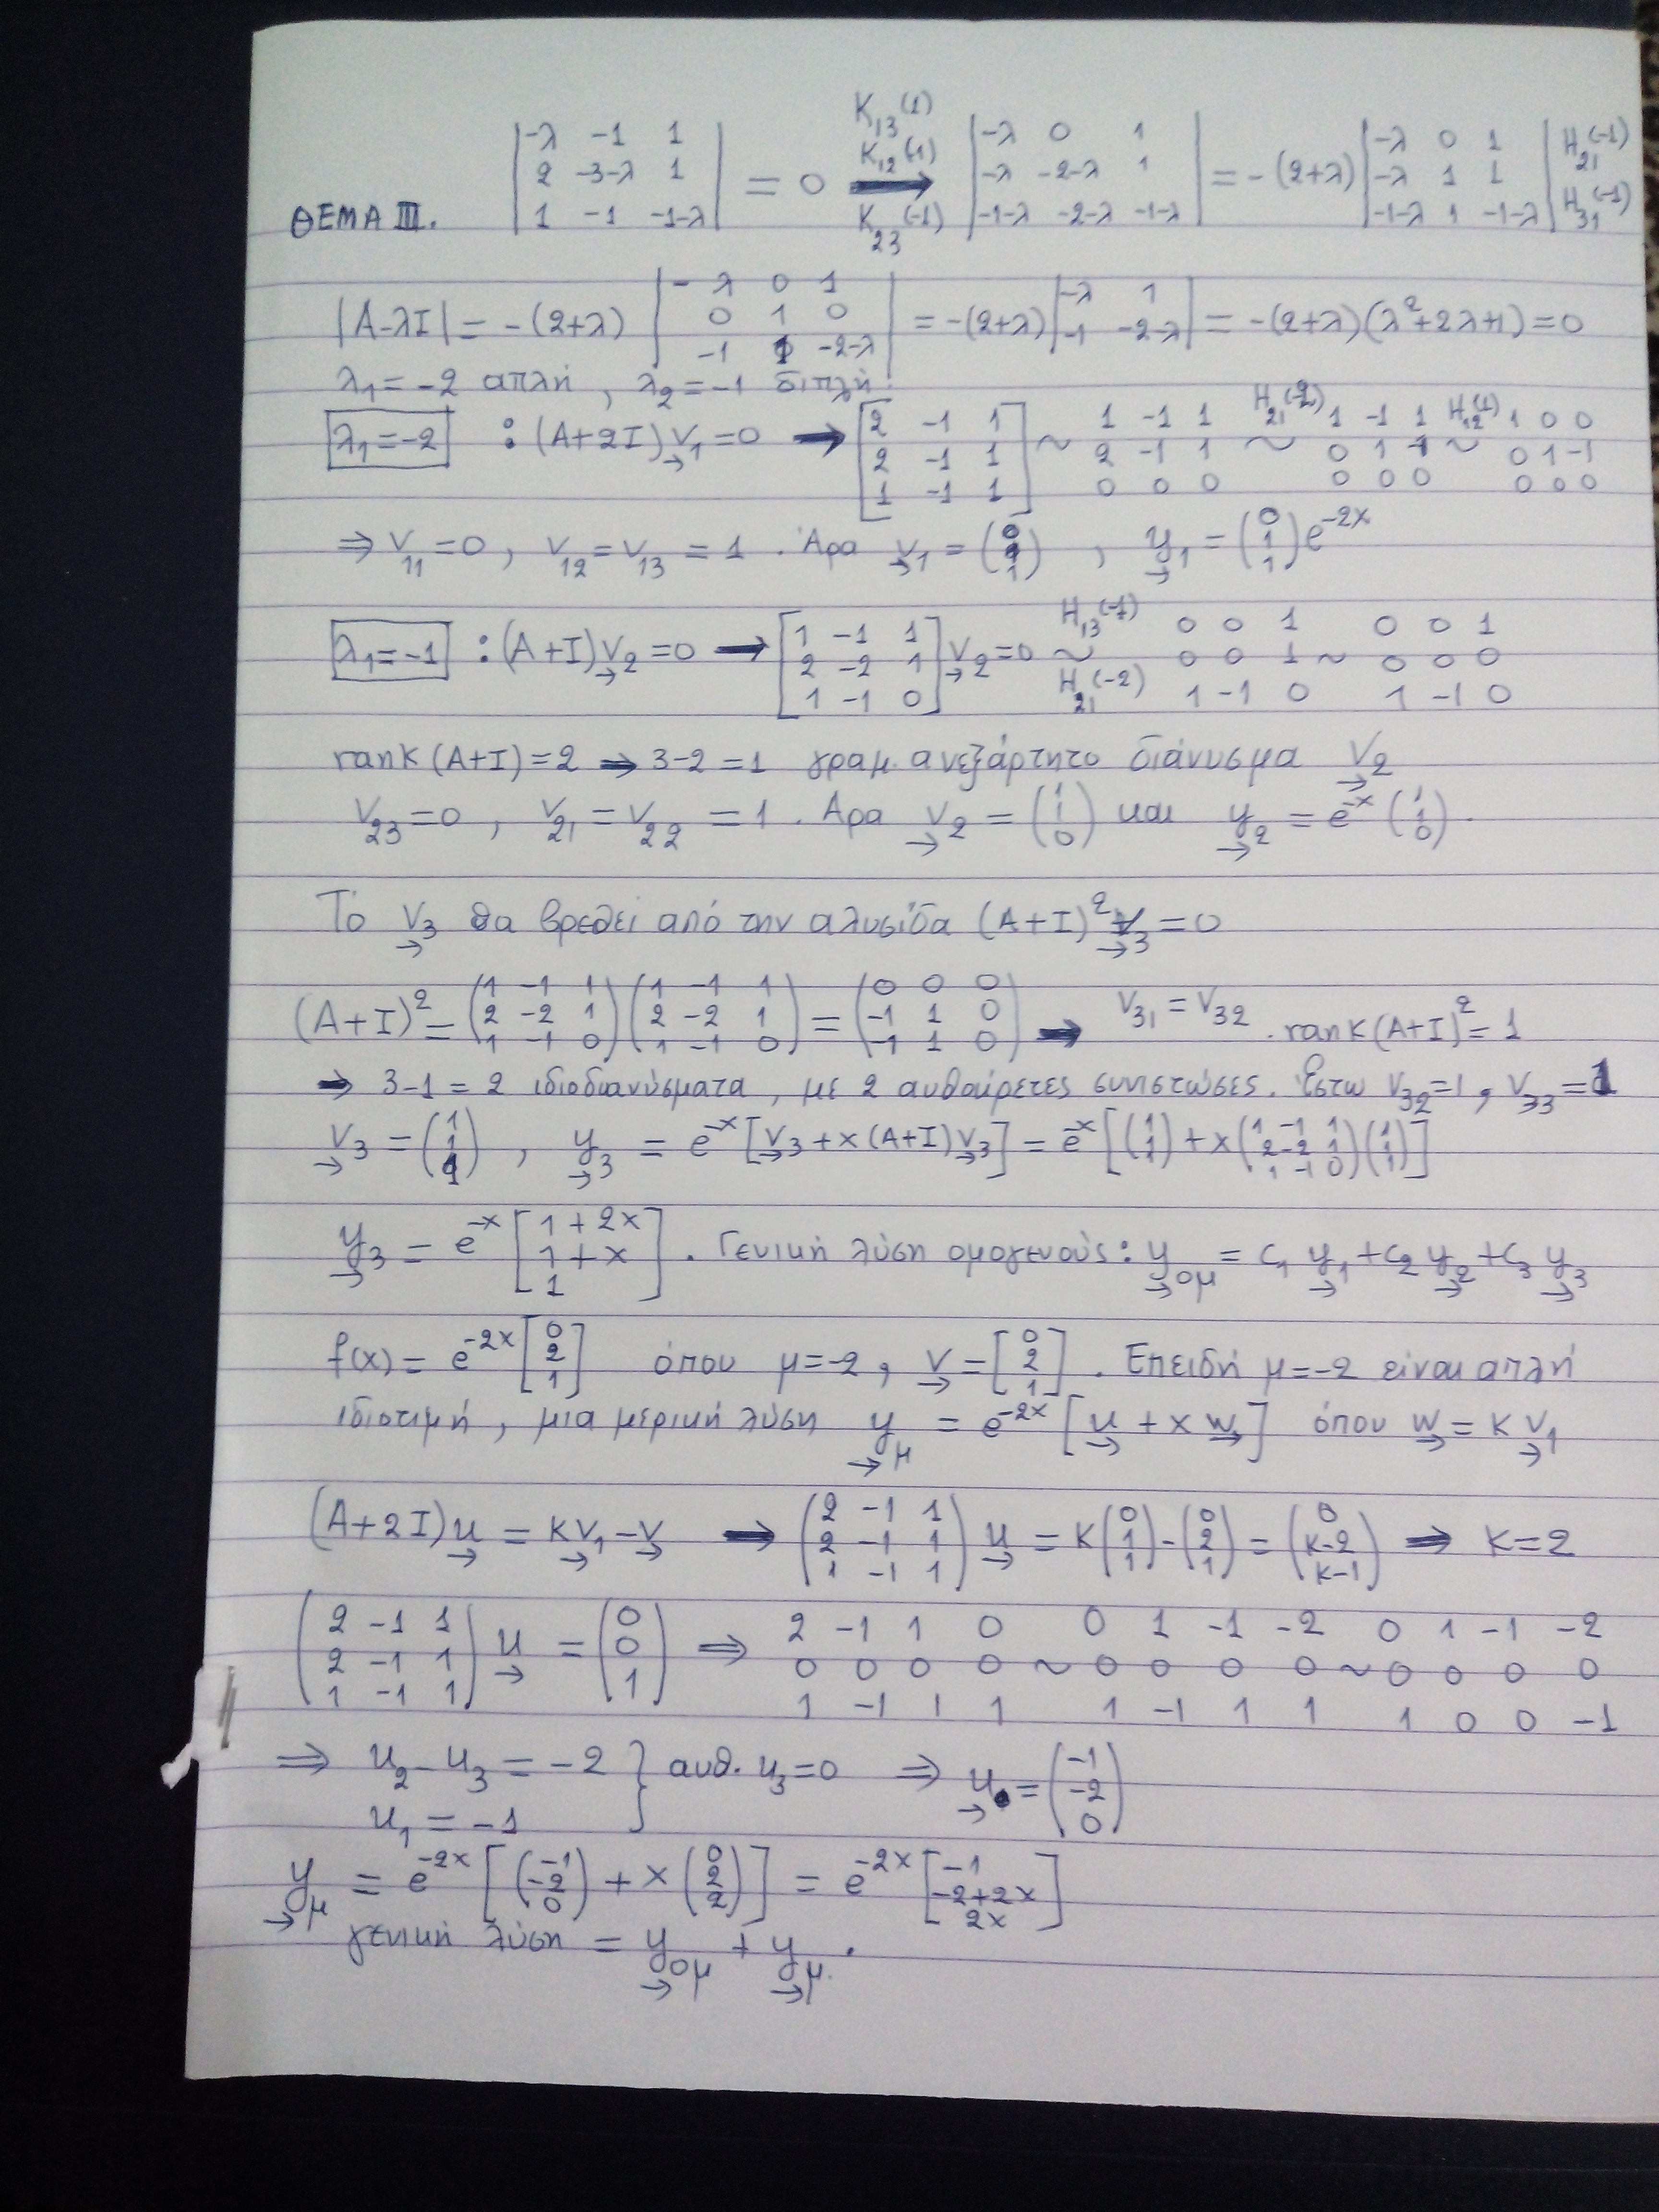 ΘΕΜΑ III. |-λ -1 1 ; 2 -3-λ 1 ; 1 -1 -1-λ| = 0 K₁₃(1) K₁₂(-1) K₂₃(-1) → |-λ 0 1 ; -λ -2-λ 1 ; -1-λ -2-λ -1-λ| = -(2+λ) |-λ 0 1 ; -λ 1 1 ; -1-λ 1 -1-λ| H₂₁(-1) H₃₁(-1)
|A-λI| = -(2+λ) |-λ 0 1 ; 0 1 0 ; -1 -2-λ| = -(2+λ) |-λ 1 ; -1 -2-λ| = -(2+λ)(λ²+2λ+1)=0
λ₁=-2 απλή, λ₂=-1 διπλή.
λ₁=-2 : (A+2I)v₁=0 → [2 -1 1 ; 2 -1 1 ; 1 -1 1] ~ 1 -1 1 ; 2 -1 1 ; 0 0 0 H₂₁(-2) ~ 1 -1 1 ; 0 1 -1 ; 0 0 0 H₁₂(1) ~ 1 0 0 ; 0 1 -1 ; 0 0 0
⇒ v₁₁=0, v₁₂=v₁₃=1. Άρα v₁=(0 ; 1 ; 1), y₁=(0 ; 1 ; 1)e^{-2x}
λ₁=-1 : (A+I)v₂=0 → [1 -1 1 ; 2 -2 1 ; 1 -1 0] v₂=0 H₁₃(-1) ~ H₂₁(-2) 0 0 1 ; 0 0 1 ; 1 -1 0 ~ 0 0 1 ; 0 0 0 ; 1 -1 0
rank(A+I)=2 ⇒ 3-2=1 γραμ. ανεξάρτητο διάνυσμα v₂
v₂₃=0, v₂₁=v₂₂=1. Άρα v₂=(1 ; 1 ; 0) και y₂=e^{-x}(1 ; 1 ; 0).
Το v₃ θα βρεθεί από την αλυσίδα (A+I)²v₃=0
(A+I)²=(1 -1 1 ; 2 -2 1 ; 1 -1 0)(1 -1 1 ; 2 -2 1 ; 1 -1 0)=(0 0 0 ; -1 1 0 ; -1 1 0) ⇒ v₃₁=v₃₂. rank(A+I)²=1
⇒ 3-1=2 ιδιοδιανύσματα, με 2 αυθαίρετες συνιστώσες. Έστω v₃₂=1, v₃₃=1
v₃=(1 ; 1 ; 1), y₃=e^{-x}[v₃+x(A+I)v₃]=e^{-x}[(1 ; 1 ; 1)+x(1 -1 1 ; 2 -2 1 ; 1 -1 0)(1 ; 1 ; 1)]
y₃=e^{-x}[1+2x ; 1+x ; 1]. Γενική λύση ομογενούς: y_{ομ}=c₁y₁+c₂y₂+c₃y₃
f(x)=e^{-2x}[0 ; 2 ; 1] όπου μ=-2, v=[0 ; 2 ; 1]. Επειδή μ=-2 είναι απλή
ιδιοτιμή, μια μερική λύση y_μ=e^{-2x}[u+xw] όπου w=kv₁
(A+2I)u=kv₁-v ⇒ (2 -1 1 ; 2 -1 1 ; 1 -1 1)u=k(0 ; 1 ; 1)-(0 ; 2 ; 1)=(0 ; k-2 ; k-1) ⇒ k=2
(2 -1 1 ; 2 -1 1 ; 1 -1 1)u=(0 ; 0 ; 1) ⇒ 2 -1 1 0 ; 0 0 0 0 ; 1 -1 1 1 ~ 0 1 -1 -2 ; 0 0 0 0 ; 1 -1 1 1 ~ 0 1 -1 -2 ; 0 0 0 0 ; 1 0 0 -1
⇒ u₂-u₃=-2 } αυθ. u₃=0 ⇒ u=(-1 ; -2 ; 0)
u₁=-1
y_μ=e^{-2x}[(-1 ; -2 ; 0)+x(0 ; 2 ; 2)]=e^{-2x}[-1 ; -2+2x ; 2x]
γενική λύση = y_{ομ}+y_μ.